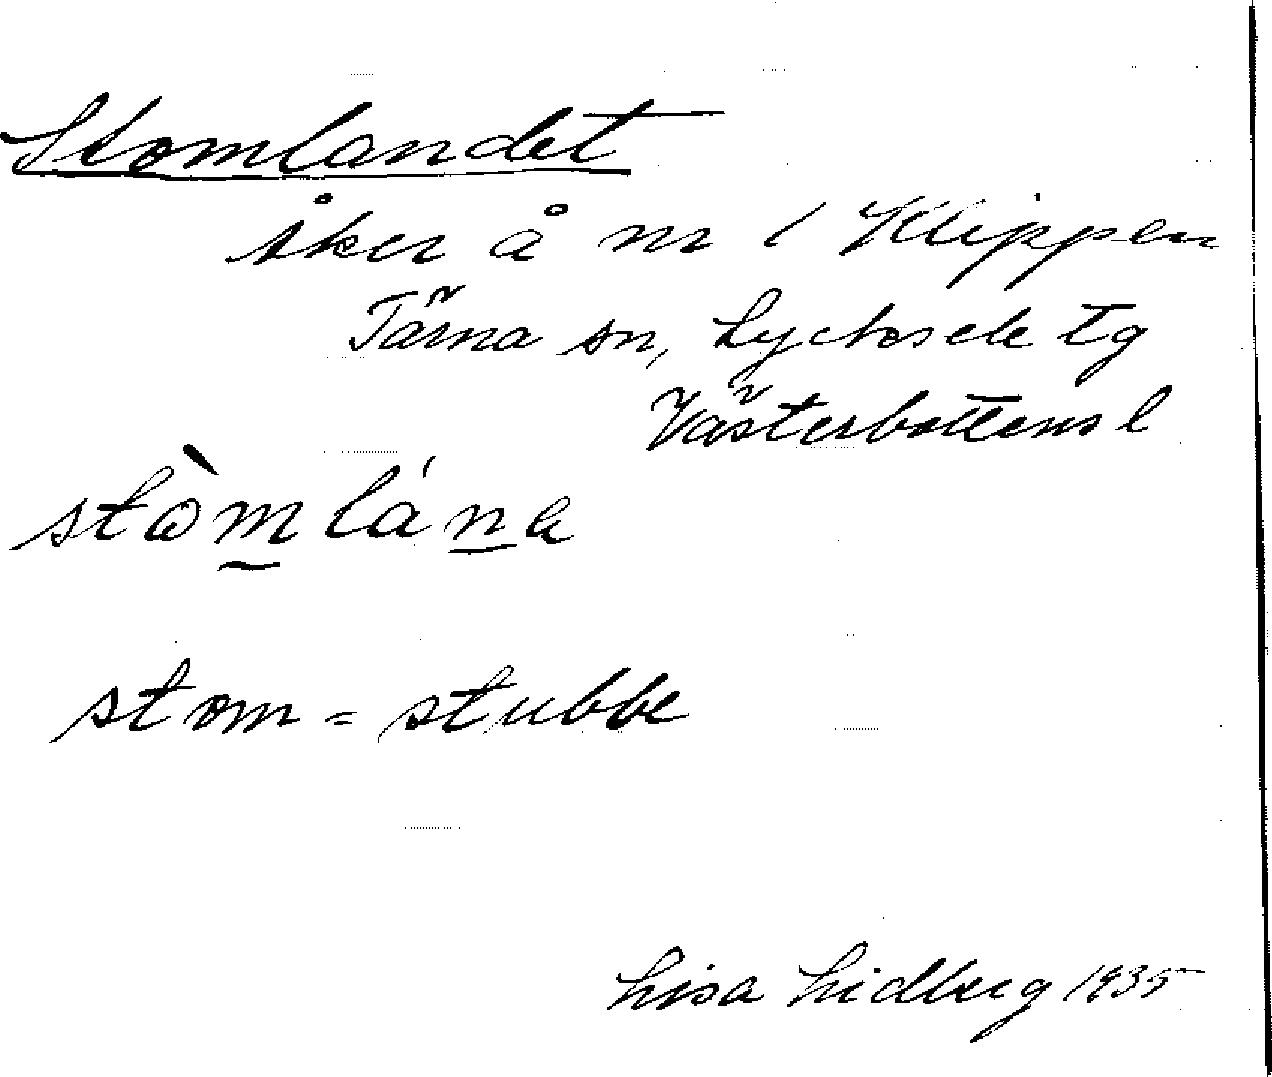 Stomlandet
åker å nr 1 Klippen
Tärna sn, Lycksele tg
Västerbottens l
stòmlána
stom = stubbe
Lisa Lidberg 1935